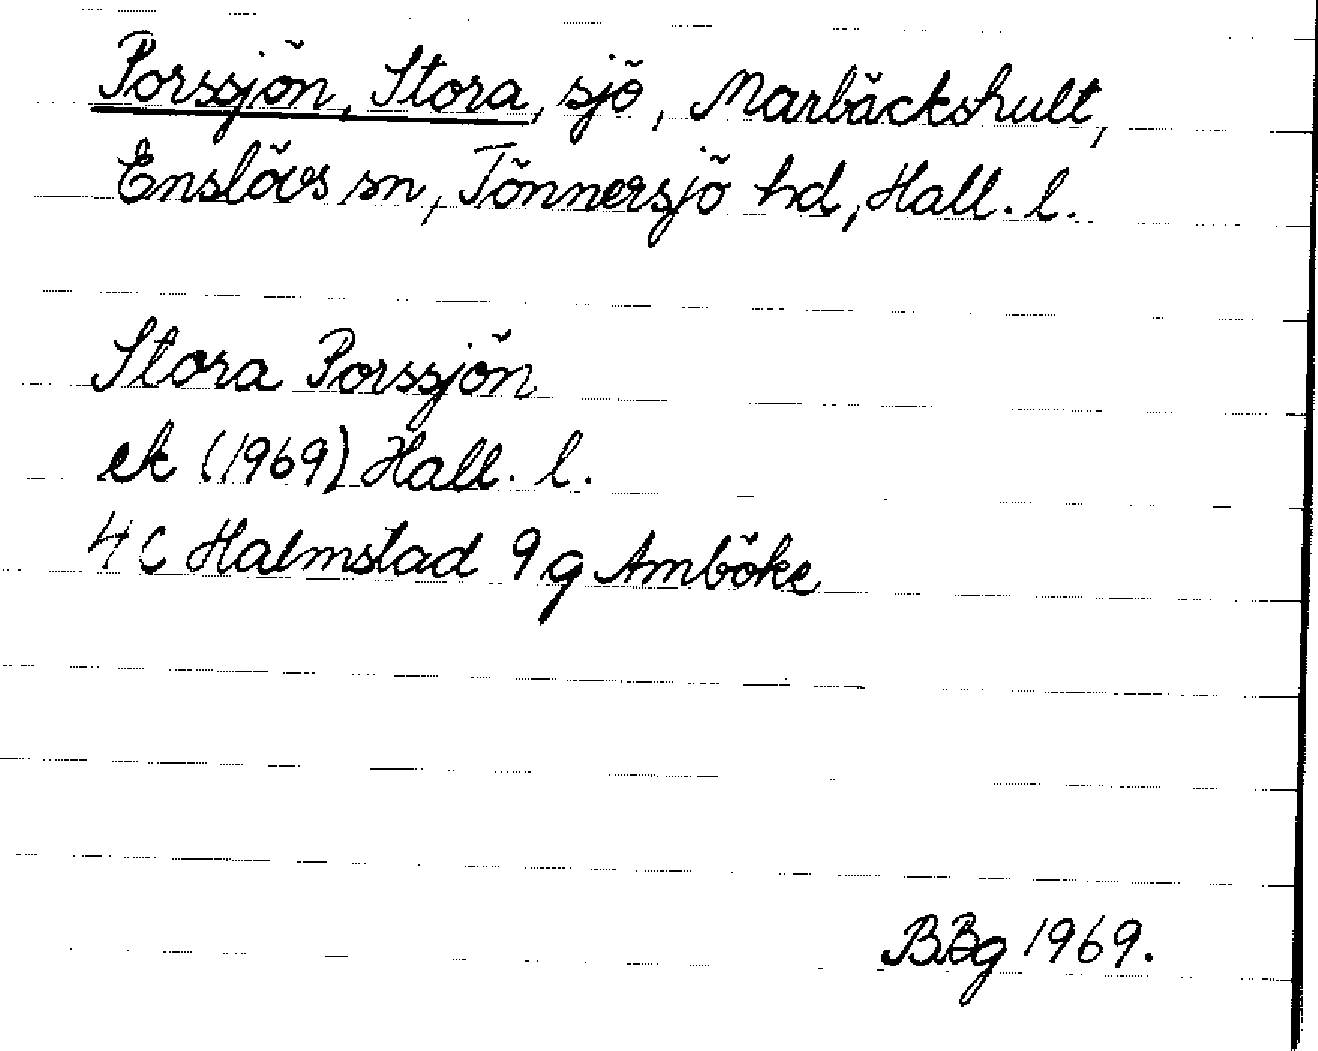 Porssjön, Stora, sjö, Marbäckshult,
Enslövs sn, Tönnersjö hd, Hall. l.
Stora Porssjön
ek (1969) Hall. l.
4 C Halmstad 9 g Amböke
BBg 1969.